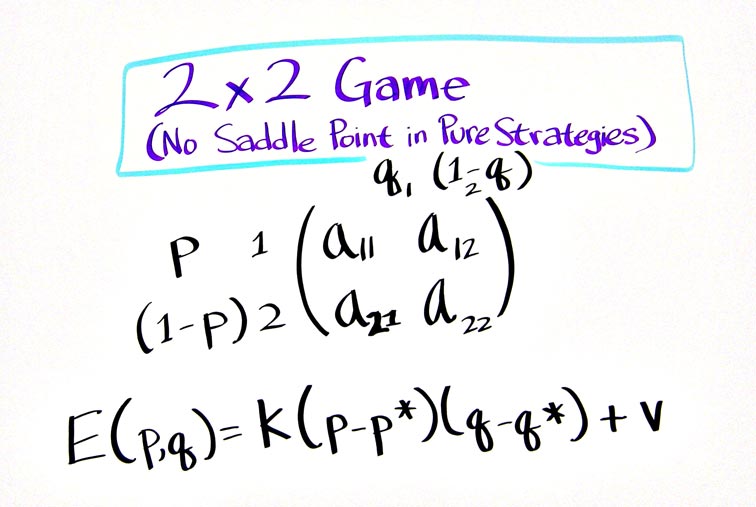 2 x 2 Game
(No Saddle Point in Pure Strategies)
q, (1-q)
1 2
P 1 ( a11 a12 )
(1-p) 2 ( a21 a22 )
E(p,q) = K(p-p*)(q-q*) + v